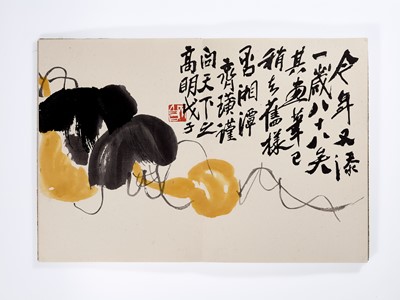 今年又添
一歲八十八矣
其畫筆已
稍去舊樣
否湘潭
齊璜謹
問天下之
高明戊子